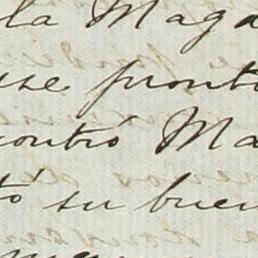 la Magd
use pronto
contró Ma
tó su buen